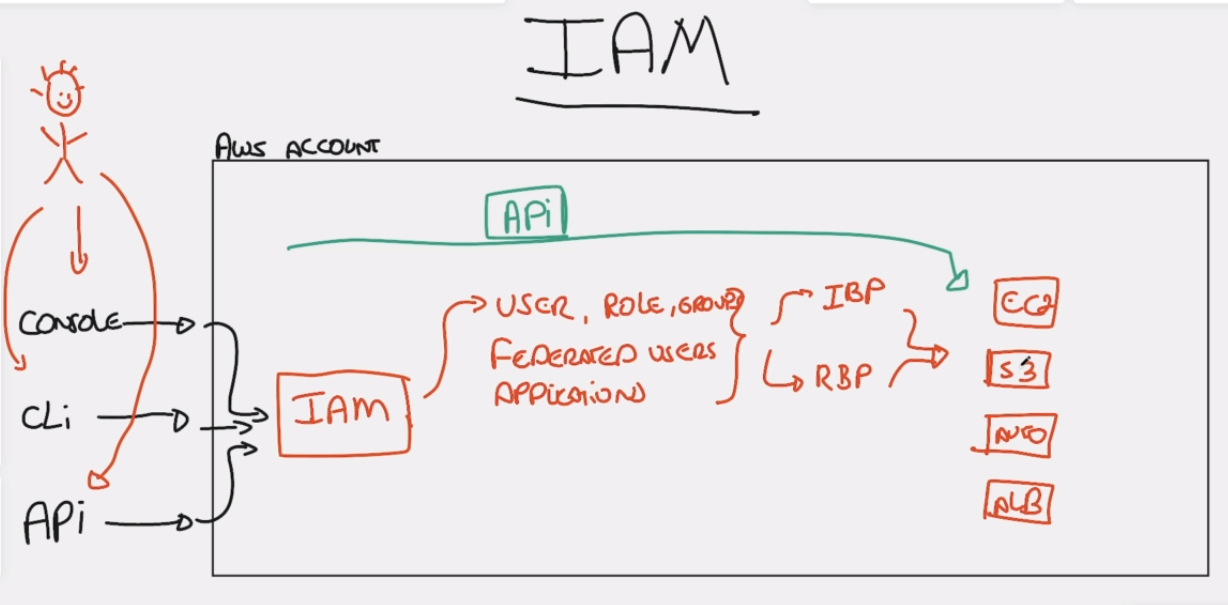 IAM
AWS ACCOUNT
API
CONSOLE
CLi
APi
IAM
USER, ROLE, GROUP
FEDERATED USERS
APPLICATIONS
IBP
RBP
EC2
S3
AUTO
ALB